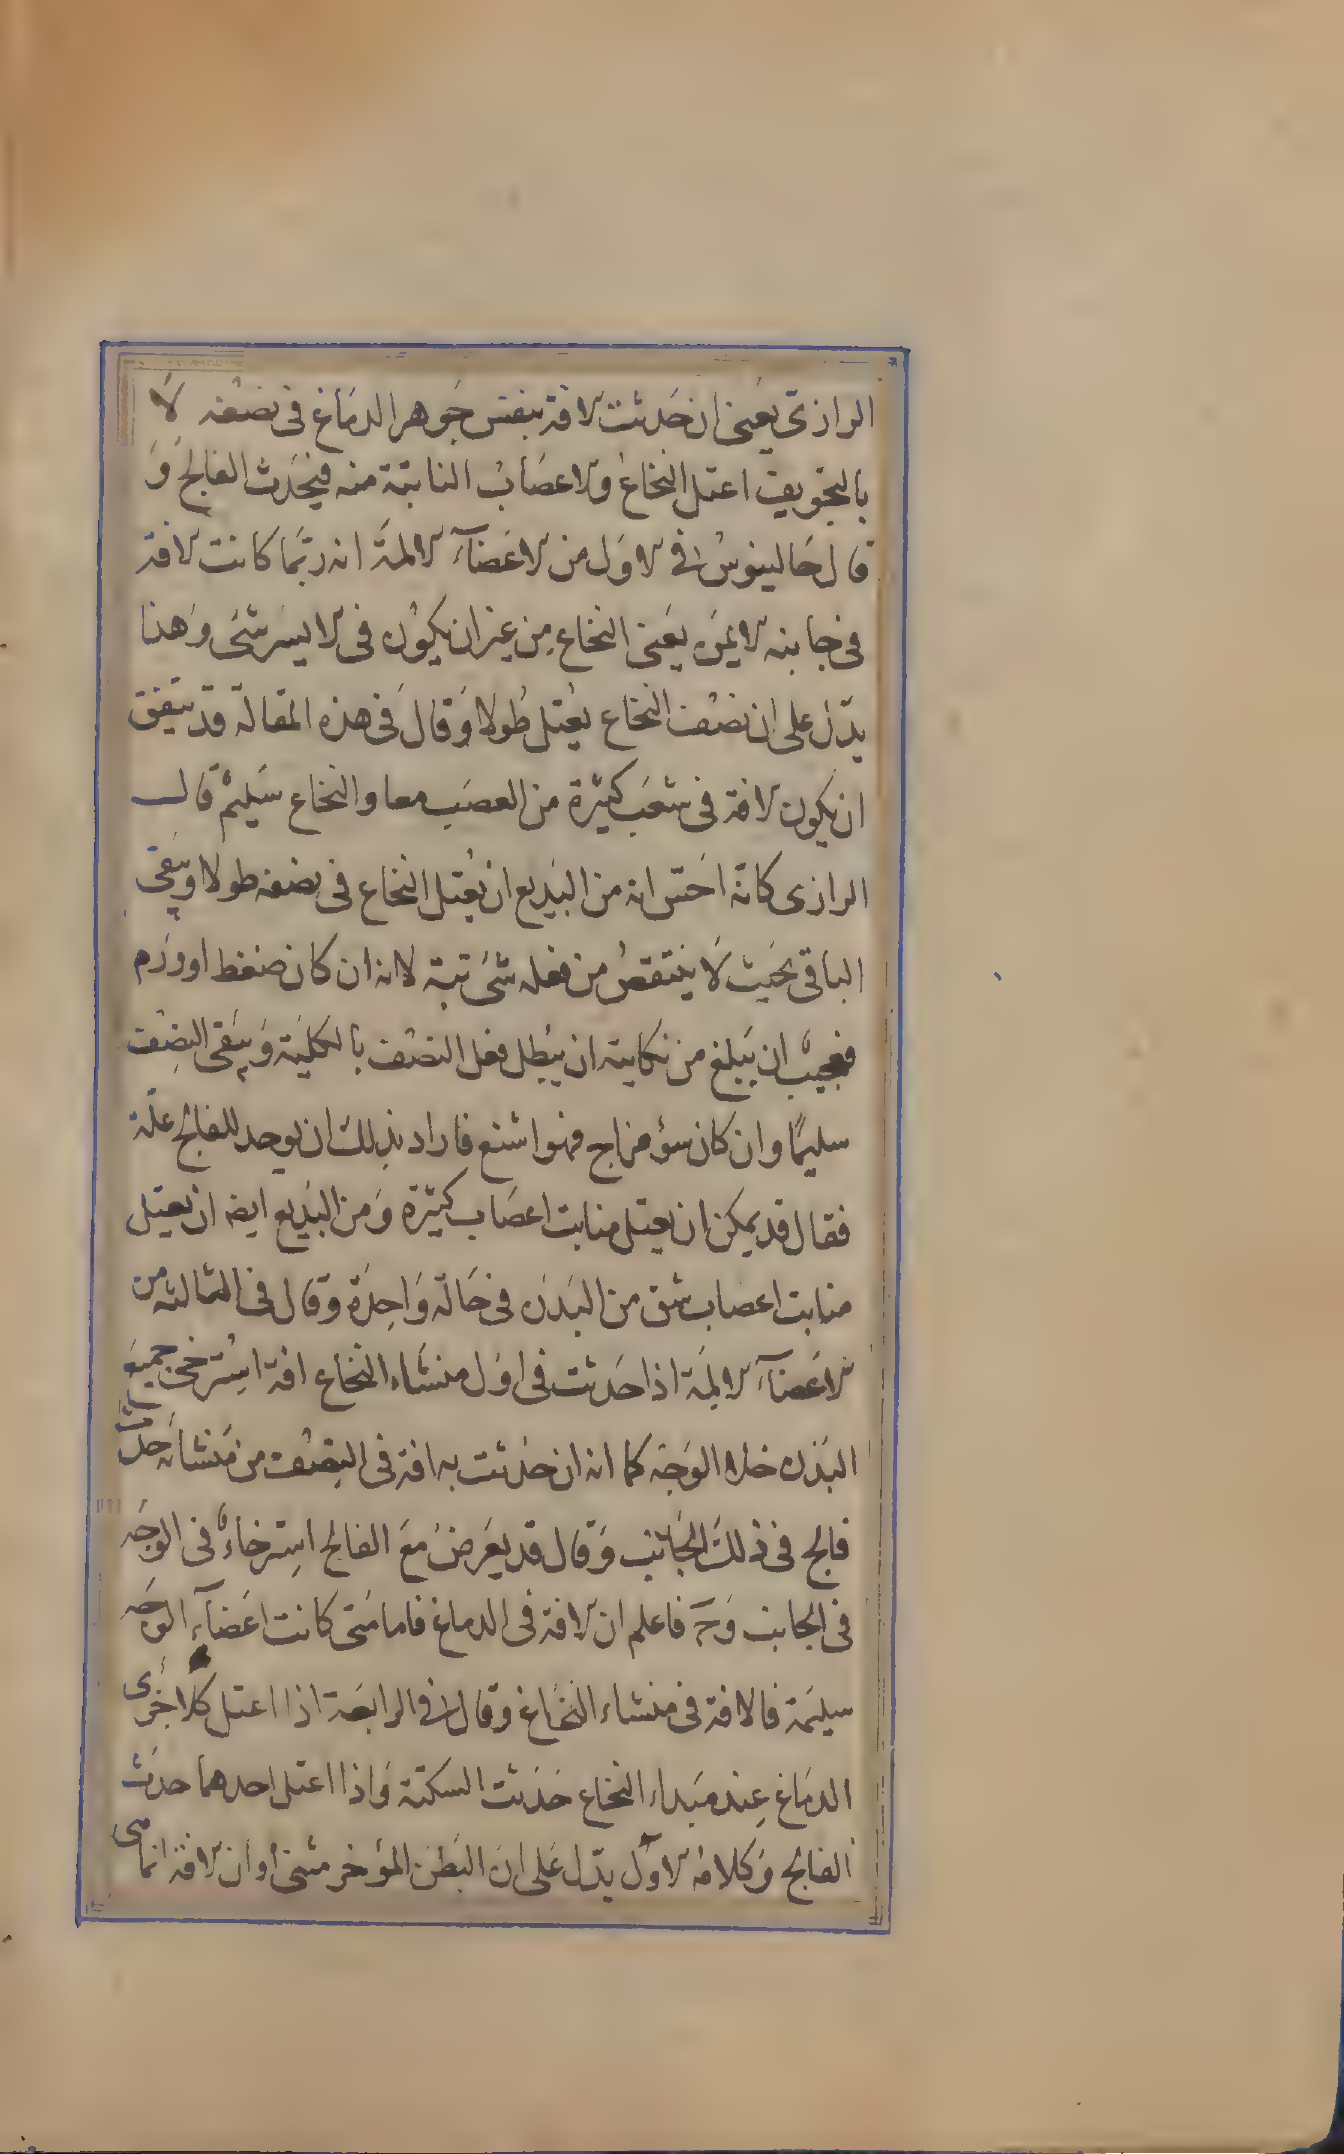 الرازي يعني ان حدثت الافة بنفس جوهر الدماغ في نصفه لا
بالتجويف اعتل النخاع والاعصاب النابتة منه فيحدث الفالج و
قال جالينوس في الاول من الاعضآء الالمة انه ربما كانت الافة
في جانبه الايمن يعني النخاع من غير ان يكون في الايسر شئ وهذا
يدل على ان نصف النخاع يعتل طولا وقال في هذه المقالة قد يتفق
ان يكون الافة في شعب كثيرة من العصب معا والنخاع سليم قال
الرازي كانه احس انه من البديع ان يعتل النخاع في نصفه طولا ويبقى
الباقي بحيث لا ينتقص من فعله شئ بتة لانه ان كان ضغط او ورم
فعجيب ان يبلغ من نكايته ان يبطل فعل النصف بالكلية ويبقى النصف
سليما وان كان سؤ مزاج فهو اشنع فاراد بذلك ان يوجد للفالج علة
فقال قد يمكن ان يعتل منابت اعصاب كثيرة ومن البديع ايضه ان يعتل
منابت اعصاب شق من البدن في حالة واحدة وقال في الثالثة من
الاعضآء الالمة اذا حدثت في اول منشاء النخاع افة استرخى جميع
البدن خلا الوجه كما انه ان حدثت به افة في النصف من منشائه حدث
فالج في ذلك الجانب وقال قد يعرض مع الفالج استرخاء في الوجه
في الجانب وحـ فاعلم ان الافة في الدماغ فاما متى كانت اعضآء الوجه
سليمة فالافة في منشاء النخاع وقال في الرابعة اذا اعتل كلا جزئى
الدماغ عند مبداء النخاع حدثت السكتة واذا اعتل احدهما حدث
الفالج وكلامه الاول يدل على ان البطن المؤخر مثنى او ان الافة انما هى